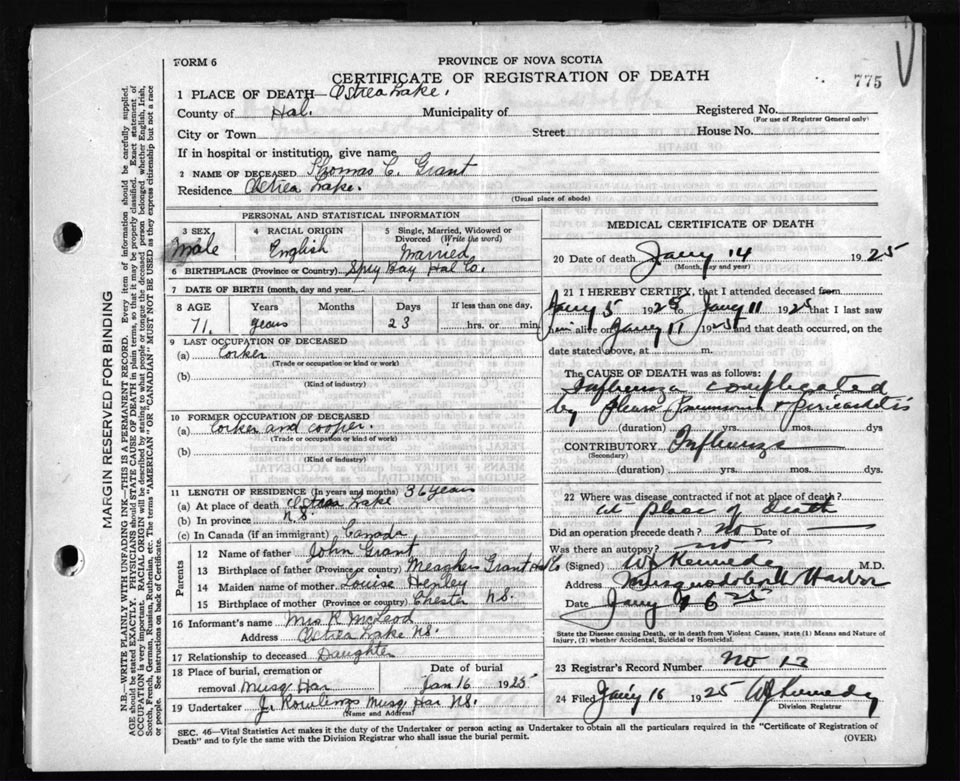 FORM 6
PROVINCE OF NOVA SCOTIA
CERTIFICATE OF REGISTRATION OF DEATH
775
1 PLACE OF DEATH— Ostrea Lake.
County of Hal. Municipality of Registered No.
(For use of Registrar General only)
City or Town Street House No.
If in hospital or institution, give name
2 NAME OF DECEASED Thomas C. Grant
Residence Ostrea Lake.
(Usual place of abode)
PERSONAL AND STATISTICAL INFORMATION
3 SEX 4 RACIAL ORIGIN 5 Single, Married, Widowed or Divorced (Write the word)
Male English Married
6 BIRTHPLACE (Province or Country) Spry Bay Hal Co.
7 DATE OF BIRTH (month, day and year)
8 AGE Years Months Days If less than one day,
71 years 23 hrs. or min.
9 LAST OCCUPATION OF DECEASED
(a) Corker
(Trade or occupation or kind of work)
(b)
(Kind of industry)
10 FORMER OCCUPATION OF DECEASED
(a) Corker and cooper.
(Trade or occupation or kind of work)
(b)
(Kind of industry)
11 LENGTH OF RESIDENCE (In years and months) 36 years
(a) At place of death Ostrea Lake
(b) In province N.S.
(c) In Canada (if an immigrant) Canada
Parents
12 Name of father John Grant
13 Birthplace of father (Province or country) Meaghers Grant Hal Co
14 Maiden name of mother Louise Henley
15 Birthplace of mother (Province or country) Chester N.S.
16 Informant's name Mrs R McLeod
Address Ostrea Lake NS.
17 Relationship to deceased Daughter
18 Place of burial, cremation or Date of burial
removal Musq Har Jan 16 1925
19 Undertaker J. Rowlings Musq Har N.S.
(Name and Address)
MEDICAL CERTIFICATE OF DEATH
20 Date of death Jany 14 1925
(Month, day and year)
21 I HEREBY CERTIFY, that I attended deceased from
Jany 5 1925 to Jany 11 1925 that I last saw
him alive on Jany 11 1925 and that death occurred, on the
date stated above, at m.
The CAUSE OF DEATH was as follows:
Influenza complicated
by Pleuro Pneumonia & Pericarditis
(duration) yrs. mos. dys
CONTRIBUTORY Influenza
(Secondary)
(duration) yrs. mos. dys.
22 Where was disease contracted if not at place of death?
at place of death
Did an operation precede death? no Date of
Was there an autopsy? no
(Signed) WJ Kennedy M.D.
Address Musquodoboit Harbor
Date Jany 16 25
State the Disease causing Death, or in death from Violent Causes, state (1) Means and Nature of
Injury, (2) whether Accidental, Suicidal or Homicidal.
23 Registrar's Record Number No 12
24 Filed Jany 16 1925 WJ Kennedy
Division Registrar
SEC. 46—Vital Statistics Act makes it the duty of the Undertaker or person acting as Undertaker to obtain all the particulars required in the "Certificate of Registration of
Death" and to fyle the same with the Division Registrar who shall issue the burial permit. (OVER)
MARGIN RESERVED FOR BINDING
N.B.—WRITE PLAINLY WITH UNFADING INK—THIS IS A PERMANENT RECORD. Every item of information should be carefully supplied.
AGE should be stated EXACTLY. PHYSICIANS should STATE CAUSE OF DEATH in plain terms, so that it may be properly classified. Exact statement of
OCCUPATION is very important. RACIAL ORIGIN will be described by stating to what people or tongue the deceased person belonged whether English, Irish,
Scotch, French, German, Russian, Ruthenian, etc. The terms "AMERICAN" OR "CANADIAN" MUST NOT BE USED as they express citizenship but not a race
or people. See instructions on back of Certificate.